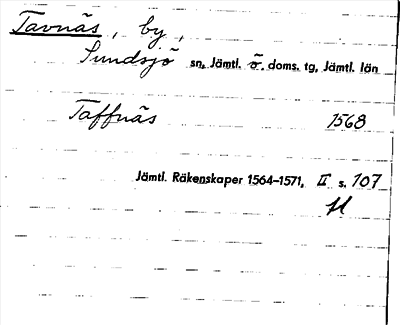 Tavnäs, by,
Sundsjö sn, Jämtl. ö. doms. tg, Jämtl. län
Taffnäs 1568
Jämtl. Räkenskaper 1564–1571, II s. 107